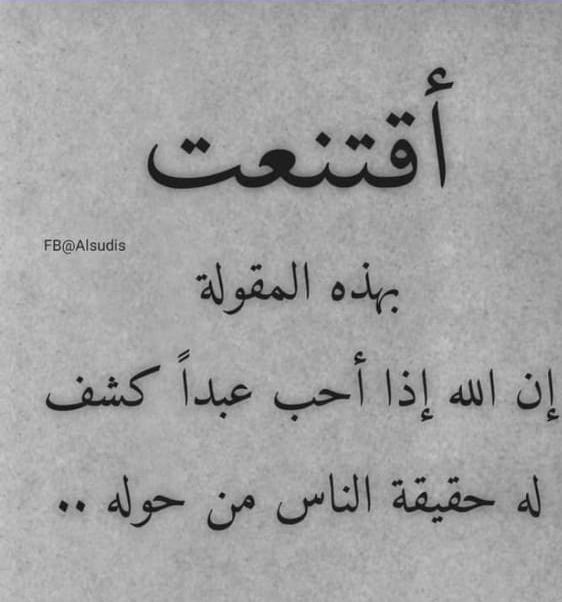 أقتنعت
FB@Alsudis
بهذه المقولة
إن الله إذا أحب عبداً كشف
له حقيقة الناس من حوله ..